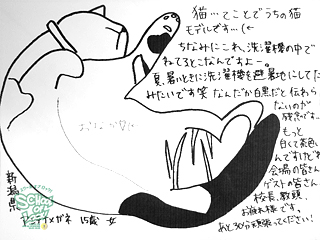 猫…てことでうちの猫
モデルです…(←
ちなみにこれ、洗濯機の中で
ねてるとこなんですよー。
夏、暑いときに洗濯機を避暑地にしてた
みたいです笑 なんだか白黒だと伝わら
ないのが
残念です…
もっと
白くて茶色い
んですけどね
会場の皆さん
ゲストの皆さん
校長、教頭、
お疲れ様です。
あと30分頑張ってください!
おなかが
新潟県
メガネ 15歳 女